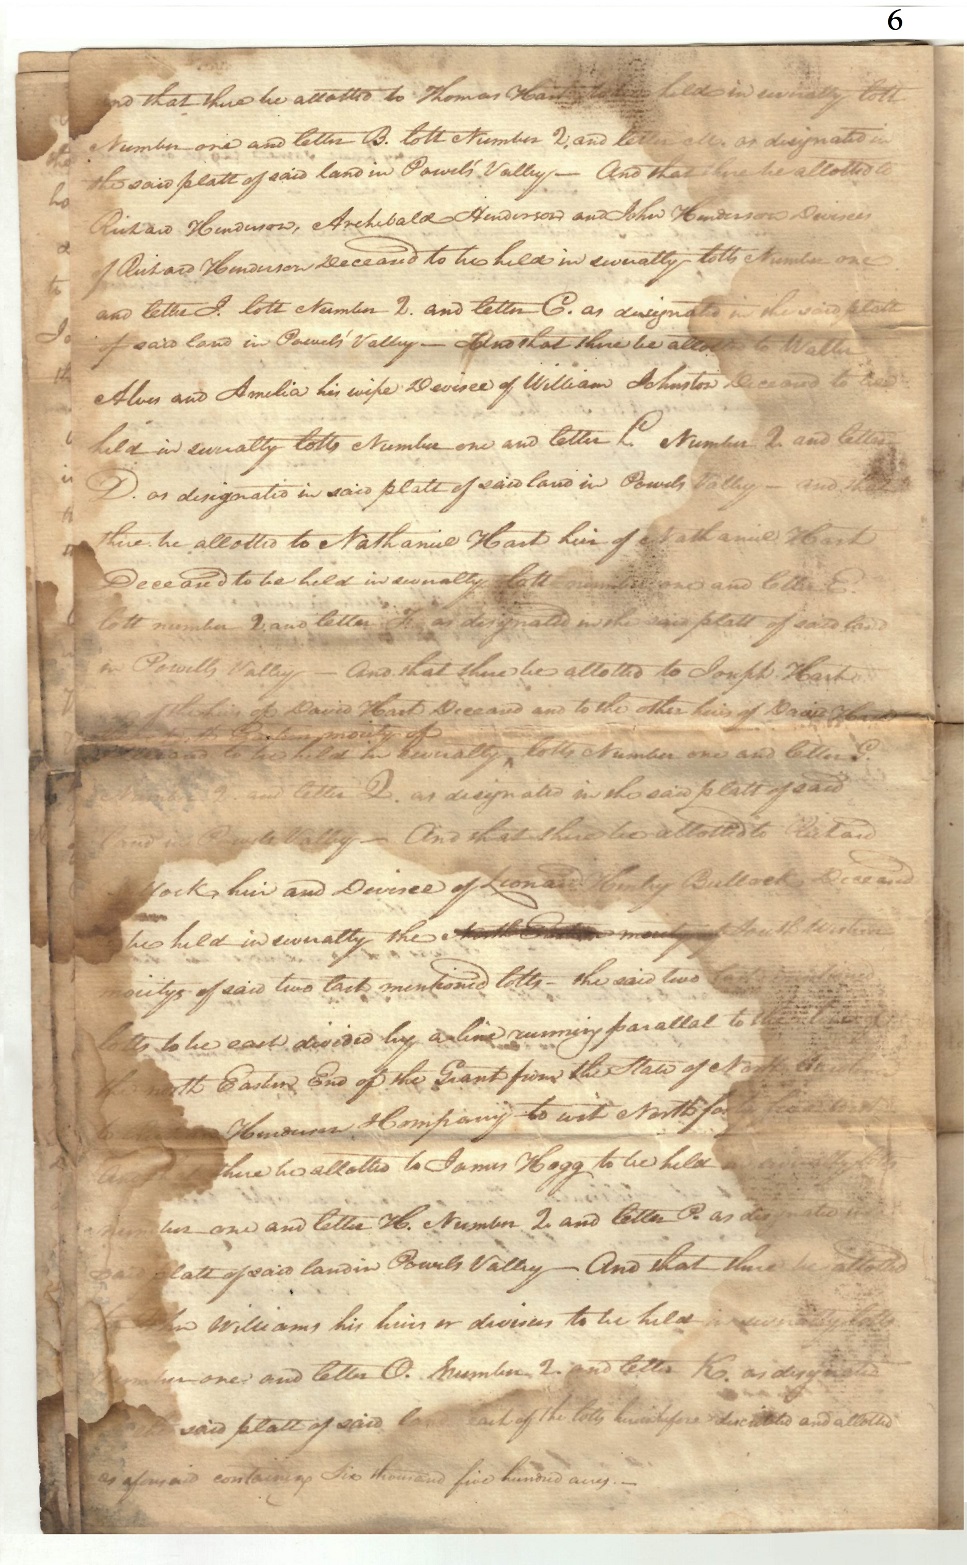 6
and that there be allotted to Thomas Hart to be held in severalty lott
Number one and letter B. lott Number 2, and letter M. as designated in
the said platt of said land in Powels Valley — And that there be allotted to
Richard Henderson, Archibald Henderson and John Henderson Devisees
of Richard Henderson Deceased to be held in severalty lotts Number one
and letter I. lott Number 2. and letter C. as designated in the said platt
of said land in Powels Valley — And that there be allotted to Walter
Alves and Amelia his wife Devisee of William Johnston Deceased to be
held in severalty lotts Number one and letter L Number 2 and letter
D. as designated in said platt of said land in Powels Valley — and that
there be allotted to Nathaniel Hart heir of Nathaniel Hart
Deceased to be held in severalty lott number one and letter E.
lott number 2, and letter as designated in the said platt of said land
in Powells Valley — And that there be allotted to Joseph Hart
of the heirs of David Hart Deceased and to the other heirs of David Hart
Eastern moiety of
to be held in severalty, lotts Number one and letter
Number 2. and letter Q. as designated in the said platt of said
land in Powels Valley — And that there be allotted to Richard
lock, heir and Devisee of Leonard Henly Bullock, Deceased
be held in severalty the North Eastern moiety of South Western
moietys of said two last mentioned lotts – the said two last mentioned
lotts to be each divided by a line running parallal to the
the North Eastern End of the Grant from the State of North Carolina
Henderson & Company to wit North forty
there be allotted to James Hogg to be held in severalty lotts
number one and letter H. Number 2 and letter P. as designated in
said platt of said land in Powels Valley — And that there be allotted
to John Williams his heirs or devisees to be held in severalty lotts
Number one and letter O. Number 2. and letter K. as designated
said platt of said land each of the lotts herein before described and allotted
as aforesaid containing Six thousand five hundred acres. —